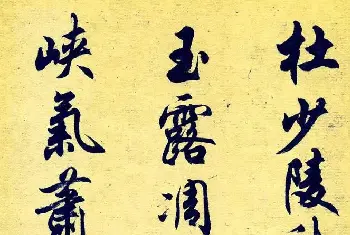 杜少陵秋
玉露凋
峽氣蕭